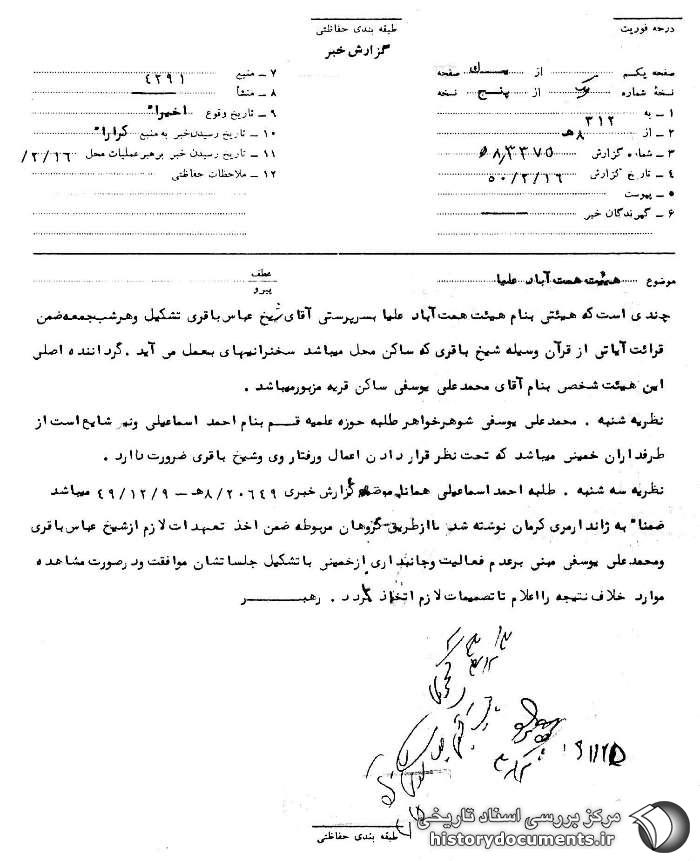 درجه فوریت
طبقه بندی حفاظتی
گزارش خبر
صفحه یکم از یک صفحه
نسخهٔ شماره یک از پنج نسخه
۱ ـ به ۳۱۲
۲ ـ از ۸هـ
۳ ـ شماره گزارش
۴ ـ تاریخ گزارش ۵۰/۲/۱۶
۵ ـ پیوست
۶ ـ گیرندگان خبر
۷ ـ منبع ۴۲۹۱
۸ ـ منشأ
۹ ـ تاریخ وقوع اخیراً
۱۰ ـ تاریخ رسیدن خبر به منبع کراراً
۱۱ ـ تاریخ رسیدن خبر برهبر عملیات محل /۲/۱۶
۱۲ ـ ملاحظات حفاظتی
موضوع هیئت همت آباد علیا
عطف
پیرو
چندی است که هیئتی بنام هیئت همت آباد علیا بسرپرستی آقای شیخ عباس باقری تشکیل وهرشب جمعه ضمن
قرائت آیاتی از قرآن وسیله شیخ باقری که ساکن محل میباشد سخنرانیهای بعمل می آید . گرداننده اصلی
این هیئت شخصی بنام آقای محمدعلی یوسفی ساکن قریه مزبورمیباشد .
نظریه شنبه . محمدعلی یوسفی شوهرخواهر طلبه حوزه علمیه قـم بنام احمد اسماعیلی ونیز شایع است از
طرفداران خمینی میباشد که تحت نظر قرار دادن اعمال ورفتار وی وشیخ باقری ضرورت دارد .
نظریه سه شنبه . طلبه احمد اسماعیلی همانا موضوع گزارش خبری ۸/۲۰۶۴۹هـ – ۴۹/۱۲/۹ میباشد
ضمناً به ژاندارمری کرمان نوشته شد تا ازطریق گروهان مربوطه ضمن اخذ تعهدات لازم ازشیخ عباس باقری
ومحمدعلی یوسفی مبنی برعدم فعالیت وجانبداری ازخمینی با تشکیل جلساتشان موافقت ودرصورت مشاهده
موارد خلاف نتیجه را اعلام تا تصمیمات لازم اتخاذ گردد . رهبـــر
طبقه بندی حفاظتی
مرکز بررسی اسناد تاریخی
historydocuments.ir